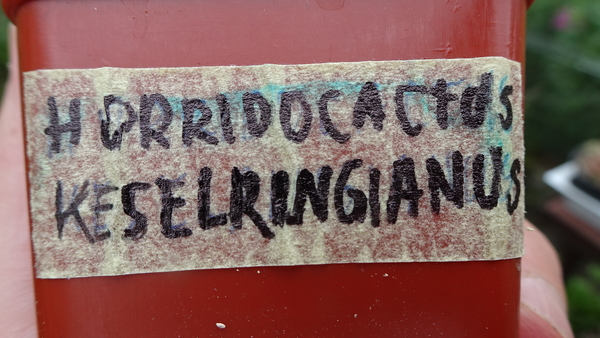 HORRIDOCACTUS
KESELRINGIANUS